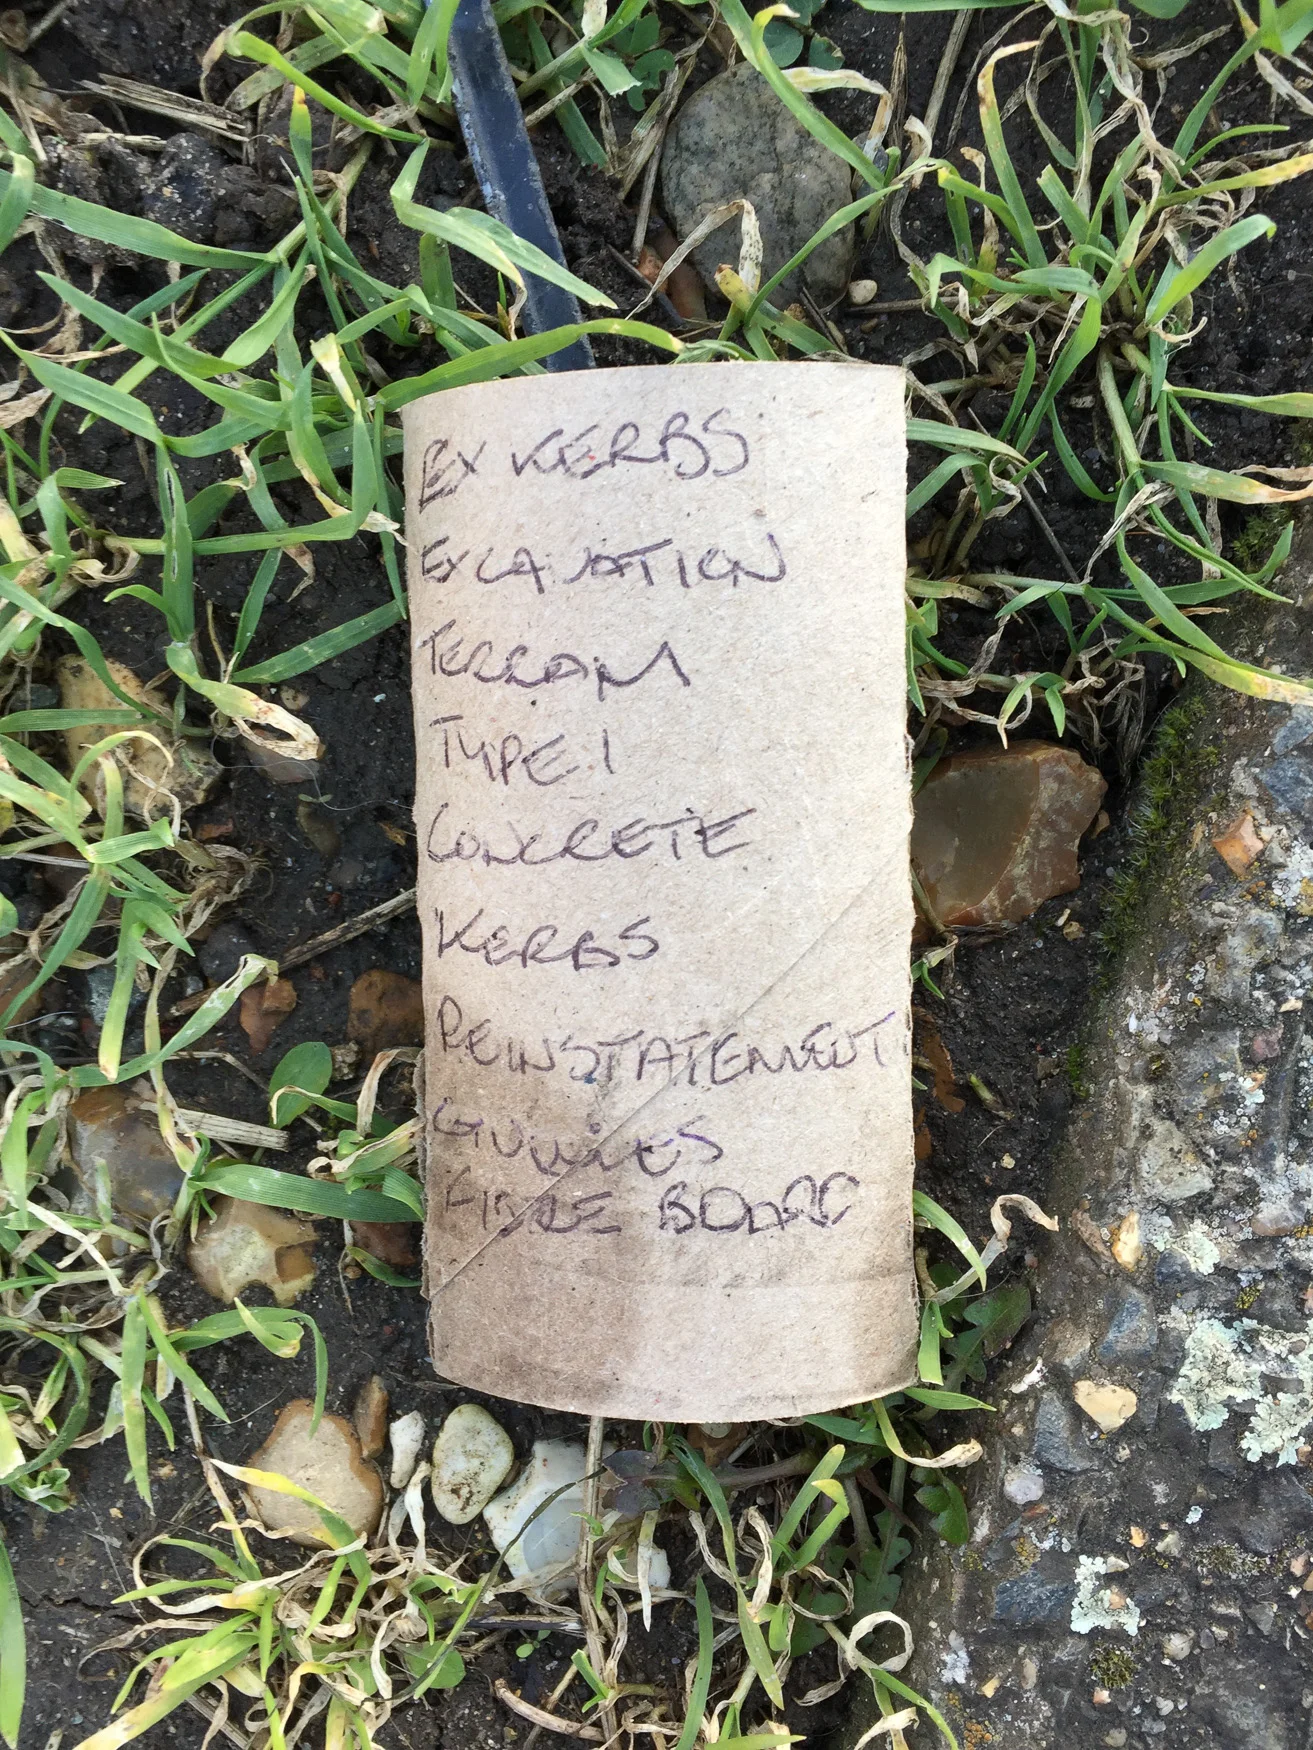 EX KERBS
EXCAVATION
TERRAM
TYPE 1
CONCRETE
KERBS
REINSTATEMENT
GULLIES
FIBRE BOARD